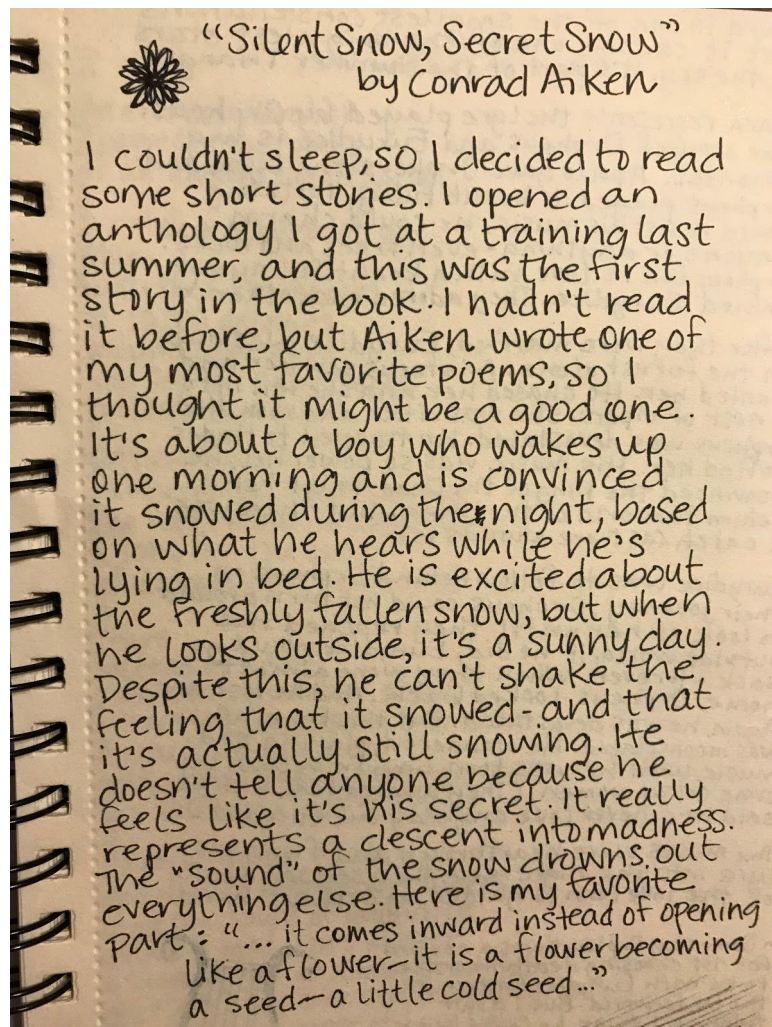 “Silent Snow, Secret Snow”
by Conrad Aiken
I couldn't sleep, so I decided to read
some short stories. I opened an
anthology I got at a training last
summer, and this was the first
story in the book. I hadn't read
it before, but Aiken wrote one of
my most favorite poems, so I
thought it might be a good one.
It's about a boy who wakes up
one morning and is convinced
it snowed during the night, based
on what he hears while he's
lying in bed. He is excited about
the freshly fallen snow, but when
he looks outside, it's a sunny day.
Despite this, he can't shake the
feeling that it snowed - and that
it's actually still snowing. He
doesn't tell anyone because he
feels like it's his secret. It really
represents a descent into madness.
The "sound" of the snow drowns out
everything else. Here is my favorite
part: "... it comes inward instead of opening
like a flower—it is a flower becoming
a seed—a little cold seed..."